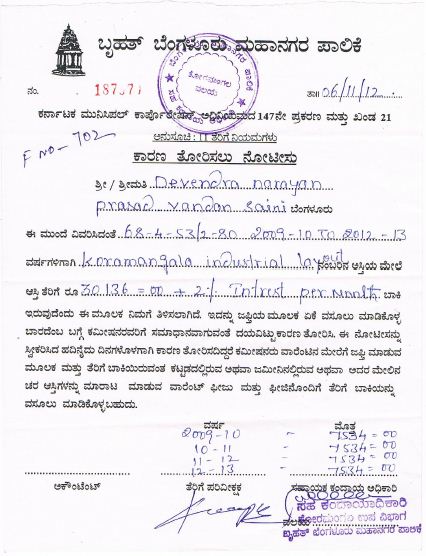 ಬೃಹತ್ ಬೆಂಗಳೂರು ಮಹಾನಗರ ಪಾಲಿಕೆ
ನಂ. 187571 ತಾ॥ 06/11/12
ಕರ್ನಾಟಕ ಮುನಿಸಿಪಲ್ ಕಾರ್ಪೊರೇಷನ್ಸ್ ಅಧಿನಿಯಮದ 147ನೇ ಪ್ರಕರಣ ಮತ್ತು ಖಂಡ 21
ಅನುಸೂಚಿ : II ತೆರಿಗೆ ನಿಯಮಗಳು
F NO - 702
ಕಾರಣ ತೋರಿಸಲು ನೋಟೀಸು
ಶ್ರೀ / ಶ್ರೀಮತಿ Devendra narayan
prasad vandan saini ಬೆಂಗಳೂರು
ಈ ಮುಂದೆ ವಿವರಿಸಿದಂತೆ 68-4-53/2-80 2009-10 TO 2012-13
ವರ್ಷಗಳಿಗಾಗಿ Koramangala industrial layout ನಂಬರಿನ ಆಸ್ತಿಯ ಮೇಲೆ
ಆಸ್ತಿ ತೆರಿಗೆ ರೂ 30136=00 + 2% Intrest per Month ಬಾಕಿ
ಇರುವುದೆಂದು ಈ ಮೂಲಕ ನಿಮಗೆ ತಿಳಿಸಲಾಗಿದೆ. ಇದನ್ನು ಜಪ್ತಿಯ ಮೂಲಕ ಏಕೆ ವಸೂಲು ಮಾಡಿಕೊಳ್ಳ
ಬಾರದೆಂಬ ಬಗ್ಗೆ ಕಮೀಷನರವರಿಗೆ ಸಮಾಧಾನವಾಗುವಂತೆ ದಯವಿಟ್ಟು ಕಾರಣ ತೋರಿಸಿ. ಈ ನೋಟೀಸನ್ನು
ಸ್ವೀಕರಿಸಿದ ಹದಿನೈದು ದಿನಗಳೊಳಗಾಗಿ ಕಾರಣ ತೋರಿಸದಿದ್ದರೆ ಕಮೀಷನರು ವಾರೆಂಟಿನ ಮೇರೆಗೆ ಜಪ್ತಿ ಮಾಡುವ
ಮೂಲಕ ಮತ್ತು ತೆರಿಗೆ ಬಾಕಿಯಿರುವಂತ ಕಟ್ಟಡದಲ್ಲಿರುವ ಅಥವಾ ಜಮೀನಿನಲ್ಲಿರುವ ಅಥವಾ ಅದರ ಮೇಲಿನ
ಚರ ಆಸ್ತಿಗಳನ್ನು ಮಾರಾಟ ಮಾಡುವ ವಾರೆಂಟ್ ಫೀಜು ಮತ್ತು ಫೀಜಿನೊಂದಿಗೆ ತೆರಿಗೆ ಬಾಕಿಯನ್ನು
ವಸೂಲು ಮಾಡಿಕೊಳ್ಳಬಹುದು.
ವರ್ಷ ಮೊತ್ತ
2009-10 - 7534=00
10-11 - 7534=00
11-12 - 7534=00
12-13 - 7534=00
ಅಕೌಂಟೆಂಟ್ ತೆರಿಗೆ ಪರಿವೀಕ್ಷಕ ಸಹಾಯಕ ಕಂದಾಯ ಅಧಿಕಾರಿ
ಸಹ ಕಂದಾಯಾಧಿಕಾರಿ
ಕೋರಮಂಗಲ ಉಪ ವಿಭಾಗ
ಬೃಹತ್ ಬೆಂಗಳೂರು ಮಹಾನಗರ ಪಾಲಿಕೆ